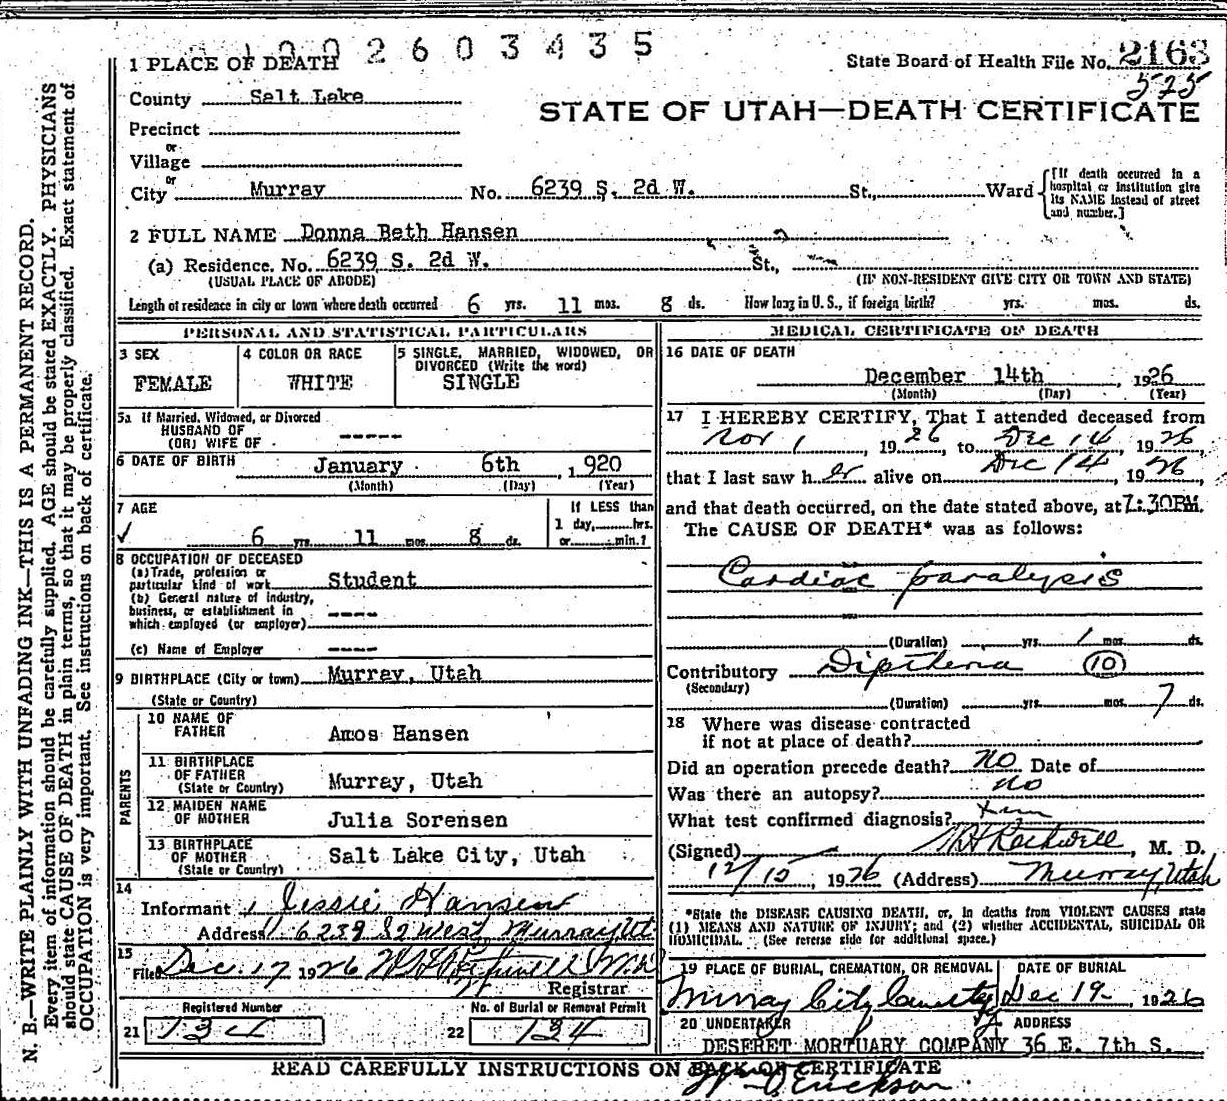 1002603435
1 PLACE OF DEATH
State Board of Health File No. 2163
525
County Salt Lake
STATE OF UTAH—DEATH CERTIFICATE
Precinct
or
Village
or
City Murray No. 6239 S. 2d W. St., Ward
[If death occurred in a
hospital or institution give
its NAME instead of street
and number.]
2 FULL NAME Donna Beth Hansen
(a) Residence. No. 6239 S. 2d W. St.,
(USUAL PLACE OF ABODE) (IF NON-RESIDENT GIVE CITY OR TOWN AND STATE)
Length of residence in city or town where death occurred 6 yrs. 11 mos. 8 ds. How long in U. S., if foreign birth? yrs. mos. ds.
PERSONAL AND STATISTICAL PARTICULARS
3 SEX
FEMALE
4 COLOR OR RACE
WHITE
5 SINGLE, MARRIED, WIDOWED, OR
DIVORCED (Write the word)
SINGLE
5a If Married, Widowed, or Divorced
HUSBAND OF
(OR) WIFE OF -----
6 DATE OF BIRTH January 6th, 1920
(Month) (Day) (Year)
7 AGE
6 yrs. 11 mos. 8 ds.
If LESS than
1 day, hrs.
or min.?
8 OCCUPATION OF DECEASED
(a) Trade, profession or
particular kind of work Student
(b) General nature of industry,
business, or establishment in
which employed (or employer) ----
(c) Name of Employer ----
9 BIRTHPLACE (City or town) Murray, Utah
(State or Country)
PARENTS
10 NAME OF
FATHER Amos Hansen
11 BIRTHPLACE
OF FATHER
(State or Country) Murray, Utah
12 MAIDEN NAME
OF MOTHER Julia Sorensen
13 BIRTHPLACE
OF MOTHER
(State or Country) Salt Lake City, Utah
14
Informant Jessie Hansen
Address 6239 S 2 West, Murray Ut
15
Filed Dec 17 1926
Registrar
Registered Number
21 134
No. of Burial or Removal Permit
22 134
MEDICAL CERTIFICATE OF DEATH
16 DATE OF DEATH
December 14th, 1926
(Month) (Day) (Year)
17 I HEREBY CERTIFY, That I attended deceased from
Nov 1, 1926, to Dec 14 1926
that I last saw her alive on Dec 14, 1926,
and that death occurred, on the date stated above, at 7:30PM.
The CAUSE OF DEATH* was as follows:
Cardiac paralysis
(Duration) yrs. 1 mos. ds.
Contributory Diptheria 10
(Secondary)
(Duration) yrs. mos. 7 ds.
18 Where was disease contracted
if not at place of death?
Did an operation precede death? No Date of
Was there an autopsy? no
What test confirmed diagnosis?
(Signed) Rockwell, M. D.
12/15, 1926 (Address) Murray, Utah
*State the DISEASE CAUSING DEATH, or, in deaths from VIOLENT CAUSES state
(1) MEANS AND NATURE OF INJURY; and (2) whether ACCIDENTAL, SUICIDAL OR
HOMICIDAL. (See reverse side for additional space.)
19 PLACE OF BURIAL, CREMATION, OR REMOVAL
Murray City
DATE OF BURIAL
Dec 19, 1926
20 UNDERTAKER ADDRESS
DESERET MORTUARY COMPANY 36 E. 7th S.
READ CAREFULLY INSTRUCTIONS ON BACK OF CERTIFICATE
Erickson
N. B.—WRITE PLAINLY WITH UNFADING INK—THIS IS A PERMANENT RECORD.
Every item of information should be carefully supplied. AGE should be stated EXACTLY. PHYSICIANS
should state CAUSE OF DEATH in plain terms, so that it may be properly classified. Exact statement of
OCCUPATION is very important. See instructions on back of certificate.